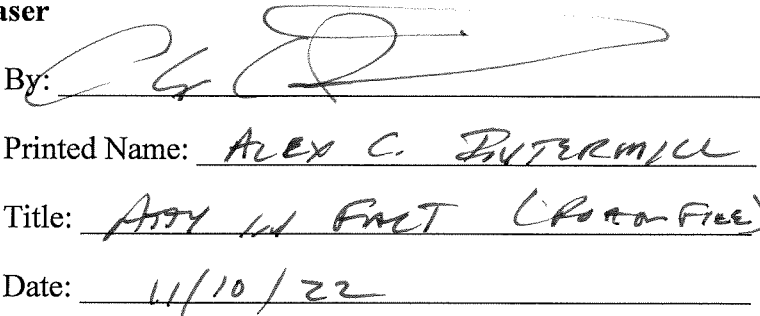 aser
By:
Printed Name: ALEX C. INTERMILL
Title: ATTY IN FACT (POA ON FILE)
Date: 11/10/22